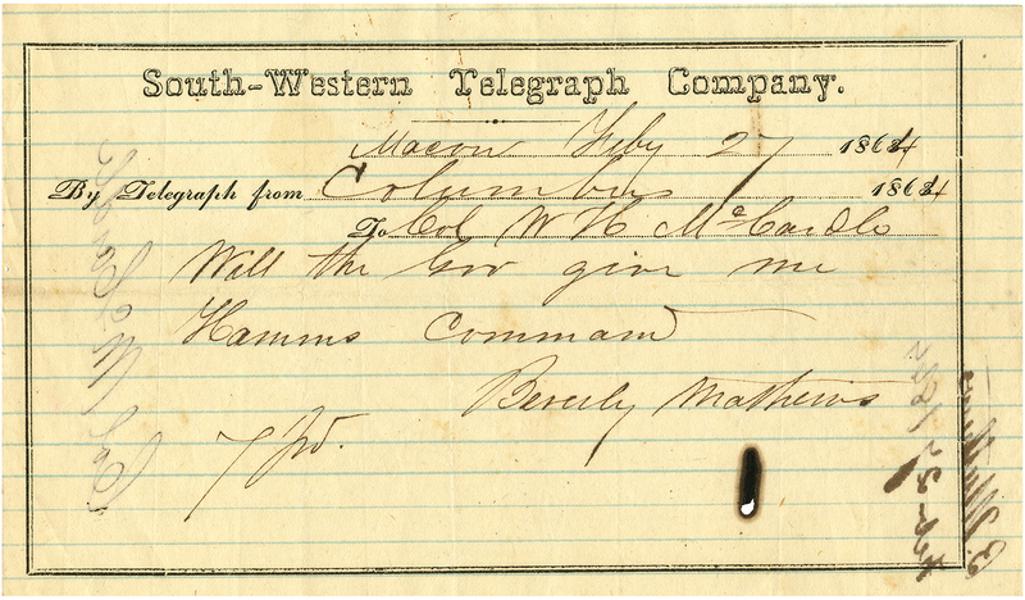 South-Western Telegraph Company.
Macon Feby 27 1864
By Telegraph from Columbus 1864
To Col W H McCardle
Will the Gov give me
Hamms Command
Beverly Mathews
7 Pd.